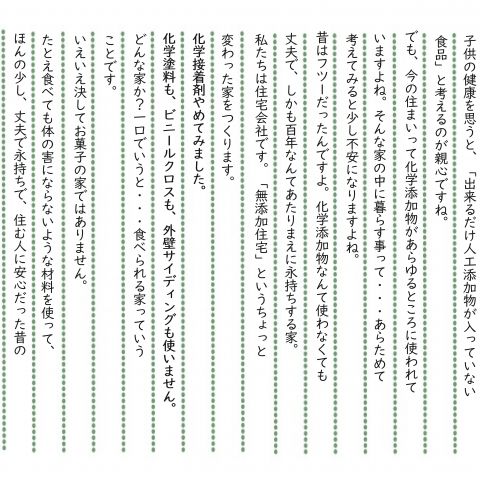 子供の健康を思うと、「出来るだけ人工添加物が入っていない
食品」と考えるのが親心ですね。
でも、今の住まいって化学添加物があらゆるところに使われて
いますよね。そんな家の中に暮らす事って・・・あらためて
考えてみると少し不安になりますよね。
昔はフツーだったんですよ。化学添加物なんて使わなくても
丈夫で、しかも百年なんてあたりまえに永持ちする家。
私たちは住宅会社です。「無添加住宅」というちょっと
変わった家をつくります。
化学接着剤やめてみました。
化学塗料も、ビニールクロスも、外壁サイディングも使いません。
どんな家か?一口でいうと・・・食べられる家っていう
ことです。
いえいえ決してお菓子の家ではありません。
たとえ食べても体の害にならないような材料を使って、
ほんの少し、丈夫で永持ちで、住む人に安心だった昔の